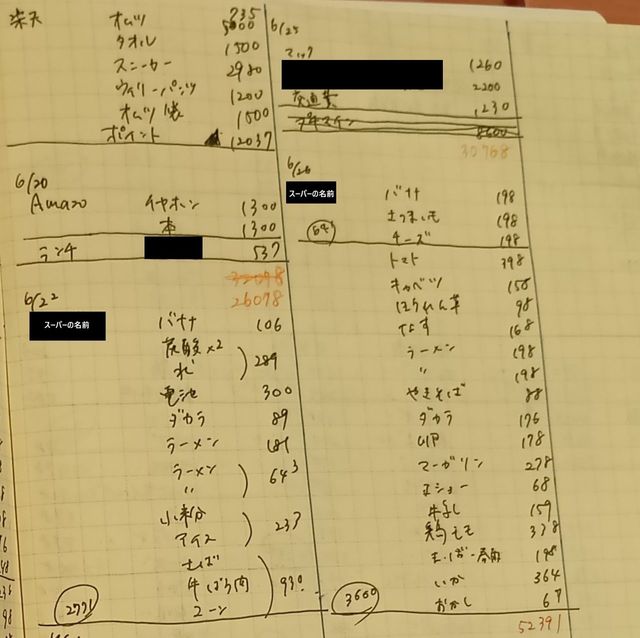 楽天 オムツ 735
タオル 1500
スニーカー 2980
1200
オムツ袋 1500
ポイント 12037
6/20
Amazo イヤホン 1300
本 1300
ランチ 537
32098
26098
6/22
スーパーの名前
バナナ 106
炭酸×2
水 289
電池 300
ダカラ 89
ラーメン 181
ラーメン
〃 643
小麦粉
アイス 237
さば
牛ばら肉 930
コーン
2771
6/25
マック 1260
2200
交通費 1230
8600
30768
6/26
スーパーの名前
バナナ 198
さつまいも 198
チーズ 198
トマト 398
キャベツ 158
ほうれん草 98
なす 168
ラーメン 198
〃 198
やきそば 88
ダカラ 176
178
マーガリン 278
68
159
鶏もも 338
198
いか 364
おかし 67
3600
52391